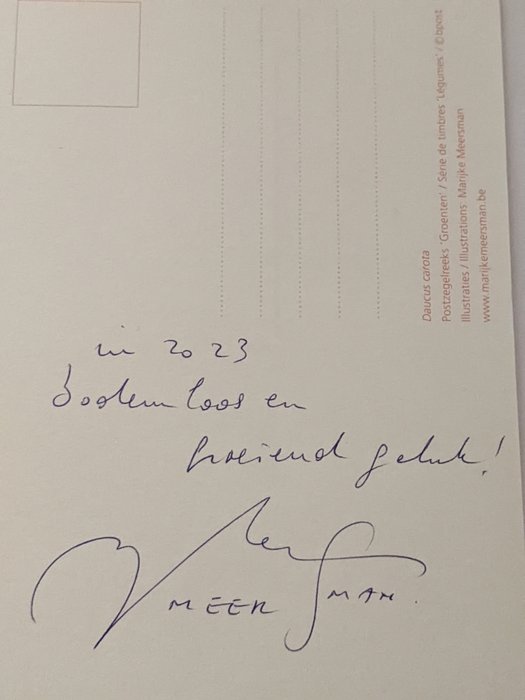 Daucus carota
Postzegelreeks 'Groenten' / Série de timbres 'Légumes' / © bpost
Illustraties / Illustrations Marijke Meersman
www.marijkemeersman.be
in 2023
bodemloos en
groeiend geluk!
MEER MAN.